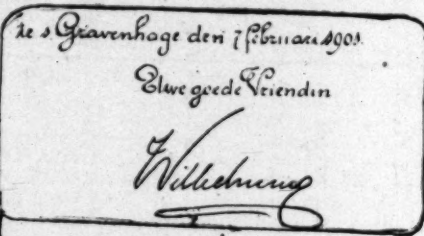 te s Gravenhage den 7 februari 1901.
Uwe goede Vriendin
Wilhelmina